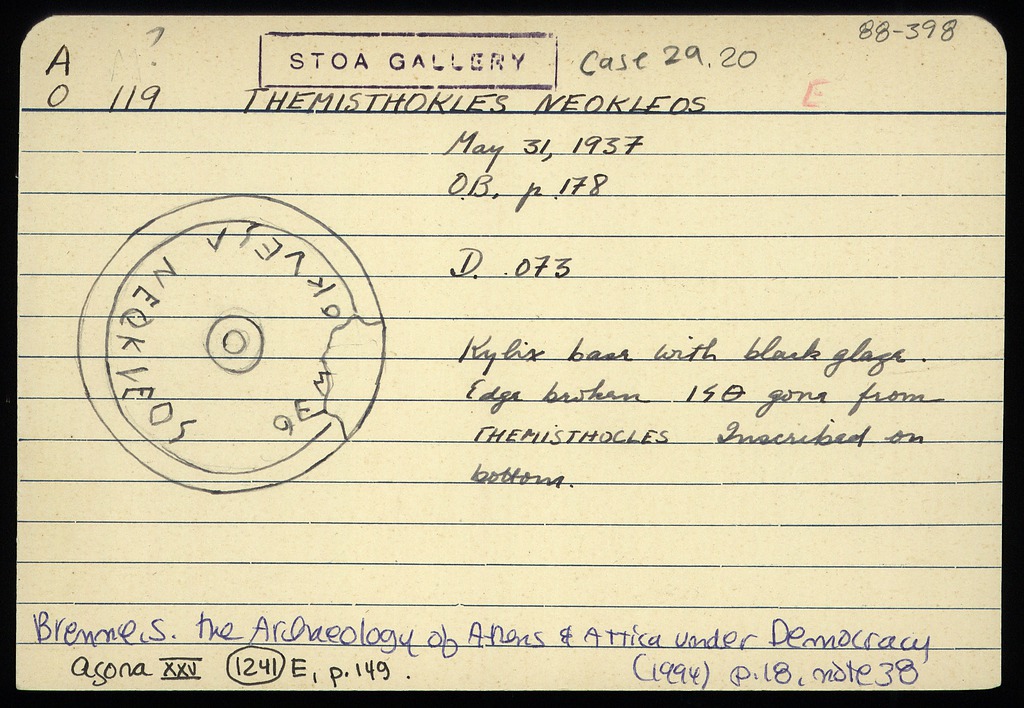 88-398
A ?
STOA GALLERY Case 29.20
O 119 THEMISTHOKLES NEOKLEOS E
May 31, 1937
O.B. p. 178
D. .073
Kylix base with black glaze.
Edge broken ΙϟΘ gone from
THEMISTHOCLES Inscribed on
bottom.
NEOKLEOS
Brenne, S. the Archaeology of Athens & Attica under Democracy
(1994) p.18, note 38
Agora XXV 1241 E, p. 149.